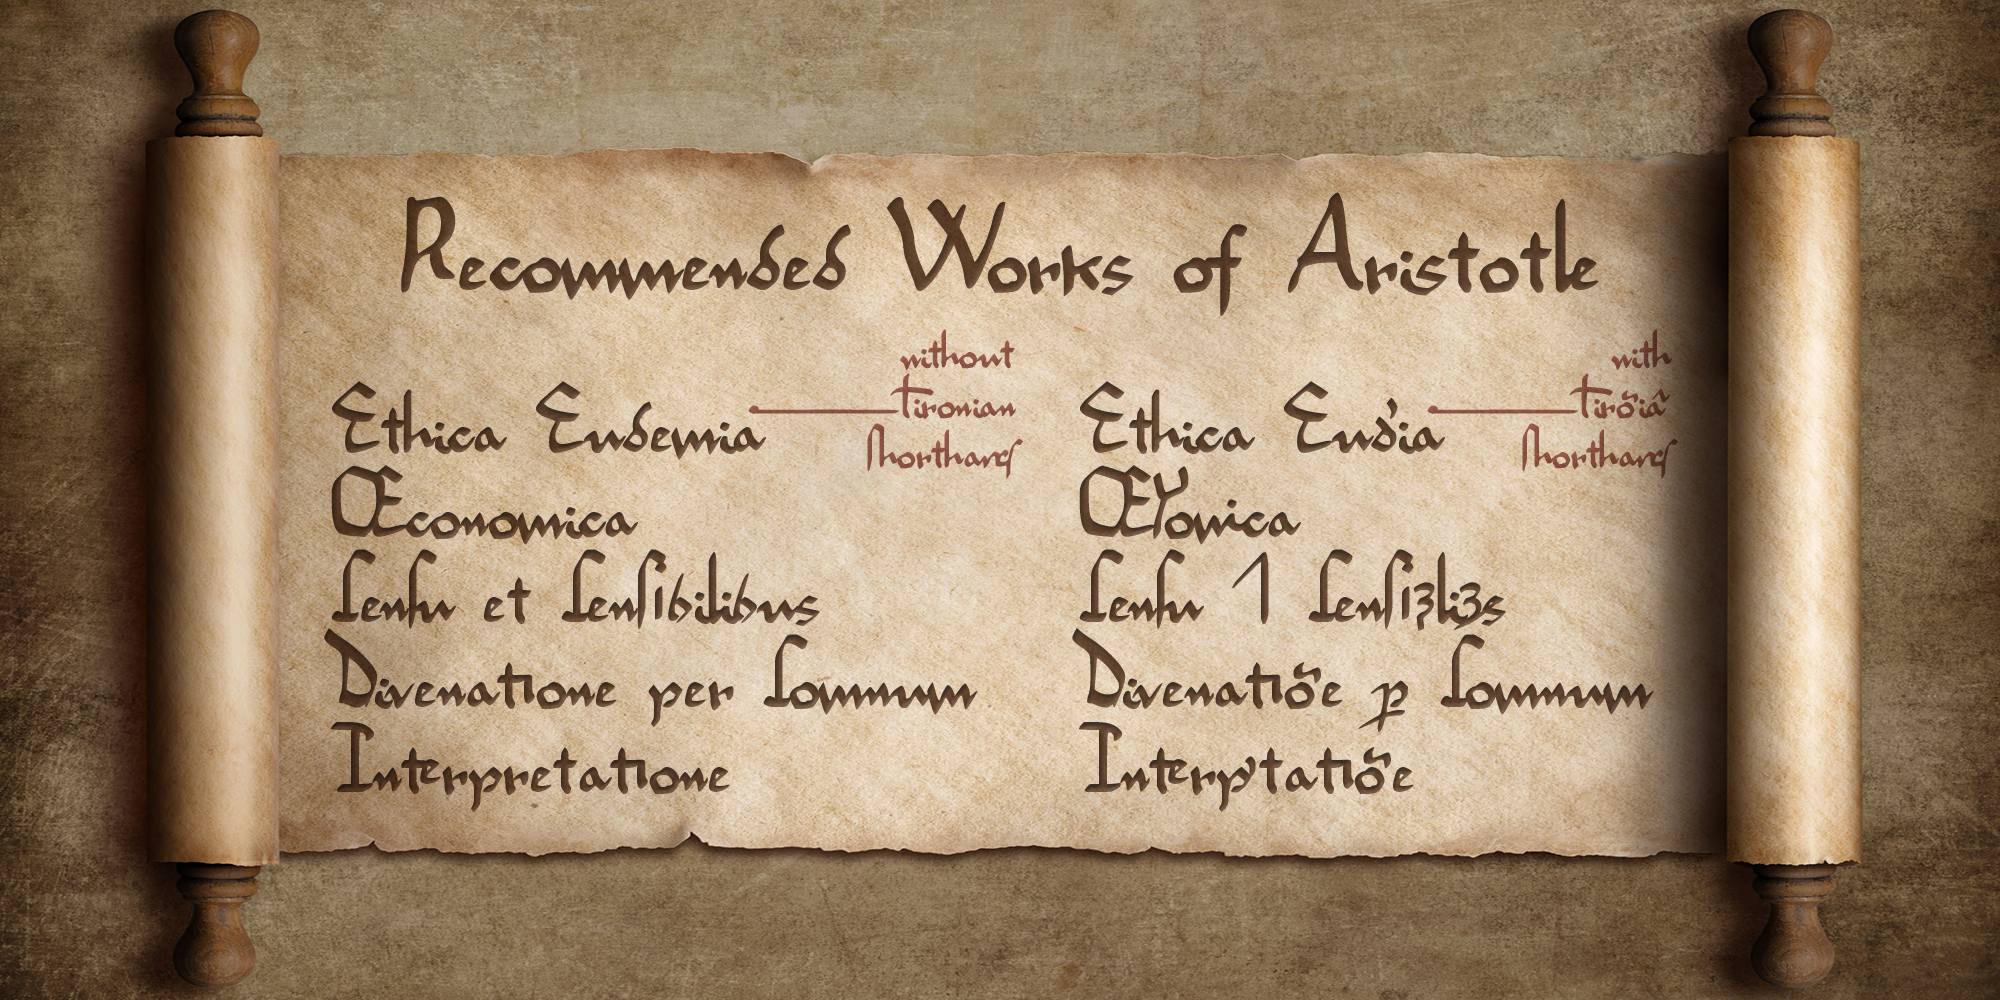 Recommended Works of Aristotle
without
Tironian
Shorthand
Ethica Eudemia
Œconomica
Senſu et Senſibilibus
Divenatione per Somnum
Interpretatione
with
Tirõiã
Shorthand
Ethica Eud̓ia
Senſu ⁊ Senſiꝫliꝫs
Divenatiõe ꝑ Somnum
Interp̓tatiõe